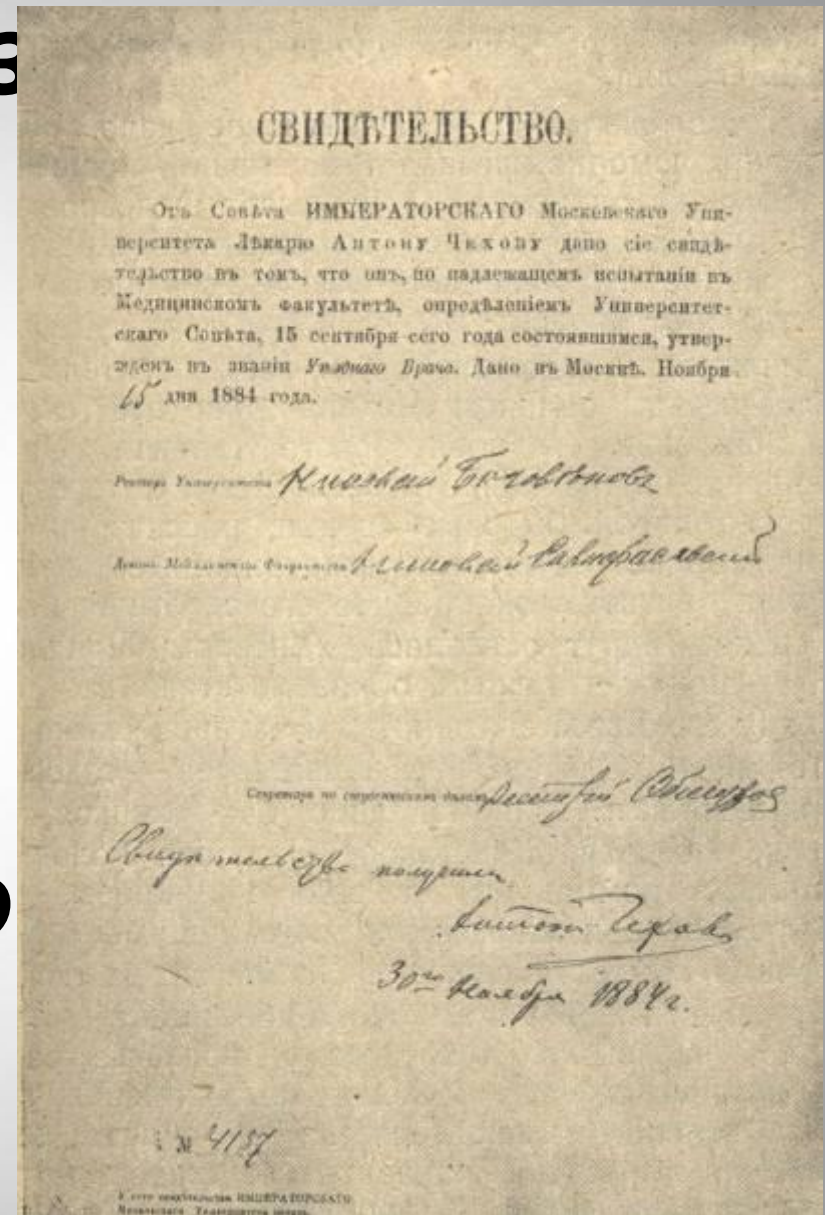 СВИДѢТЕЛЬСТВО.
Отъ Совѣта ИМПЕРАТОРСКАГО Московскаго Уни-
верситета Лѣкарю Антону Чехову дано сіе свидѣ-
тельство въ томъ, что онъ, по надлежащемъ испытаніи въ
Медицинскомъ Факультетѣ, опредѣленіемъ Университет-
скаго Совѣта, 15 сентября сего года состоявшимся, утвер-
жденъ въ званіи Уѣзднаго Врача. Дано въ Москвѣ. Ноября
15 дня 1884 года.
Ректоръ Университета Николай Боголѣповъ
Деканъ Медицинскаго Факультета
Секретарь по студенческимъ дѣламъ
Свидѣтельство получилъ
Антонъ Чеховъ
30го Ноября 1884 г.
№ 4137
К сему свидѣтельству ИМПЕРАТОРСКАГО
Московскаго Университета печать.